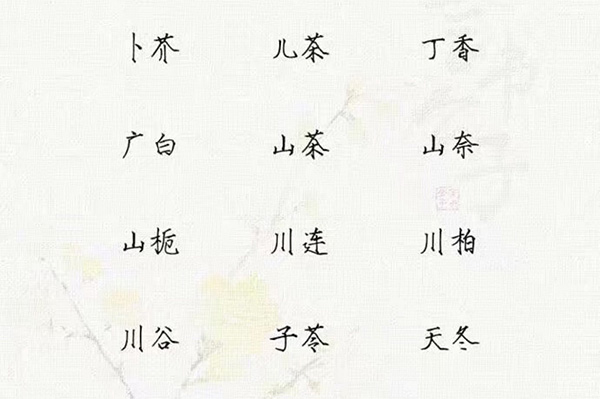 卜芥 儿茶 丁香
广白 山茶 山奈
山栀 川连 川柏
川谷 子苓 天冬